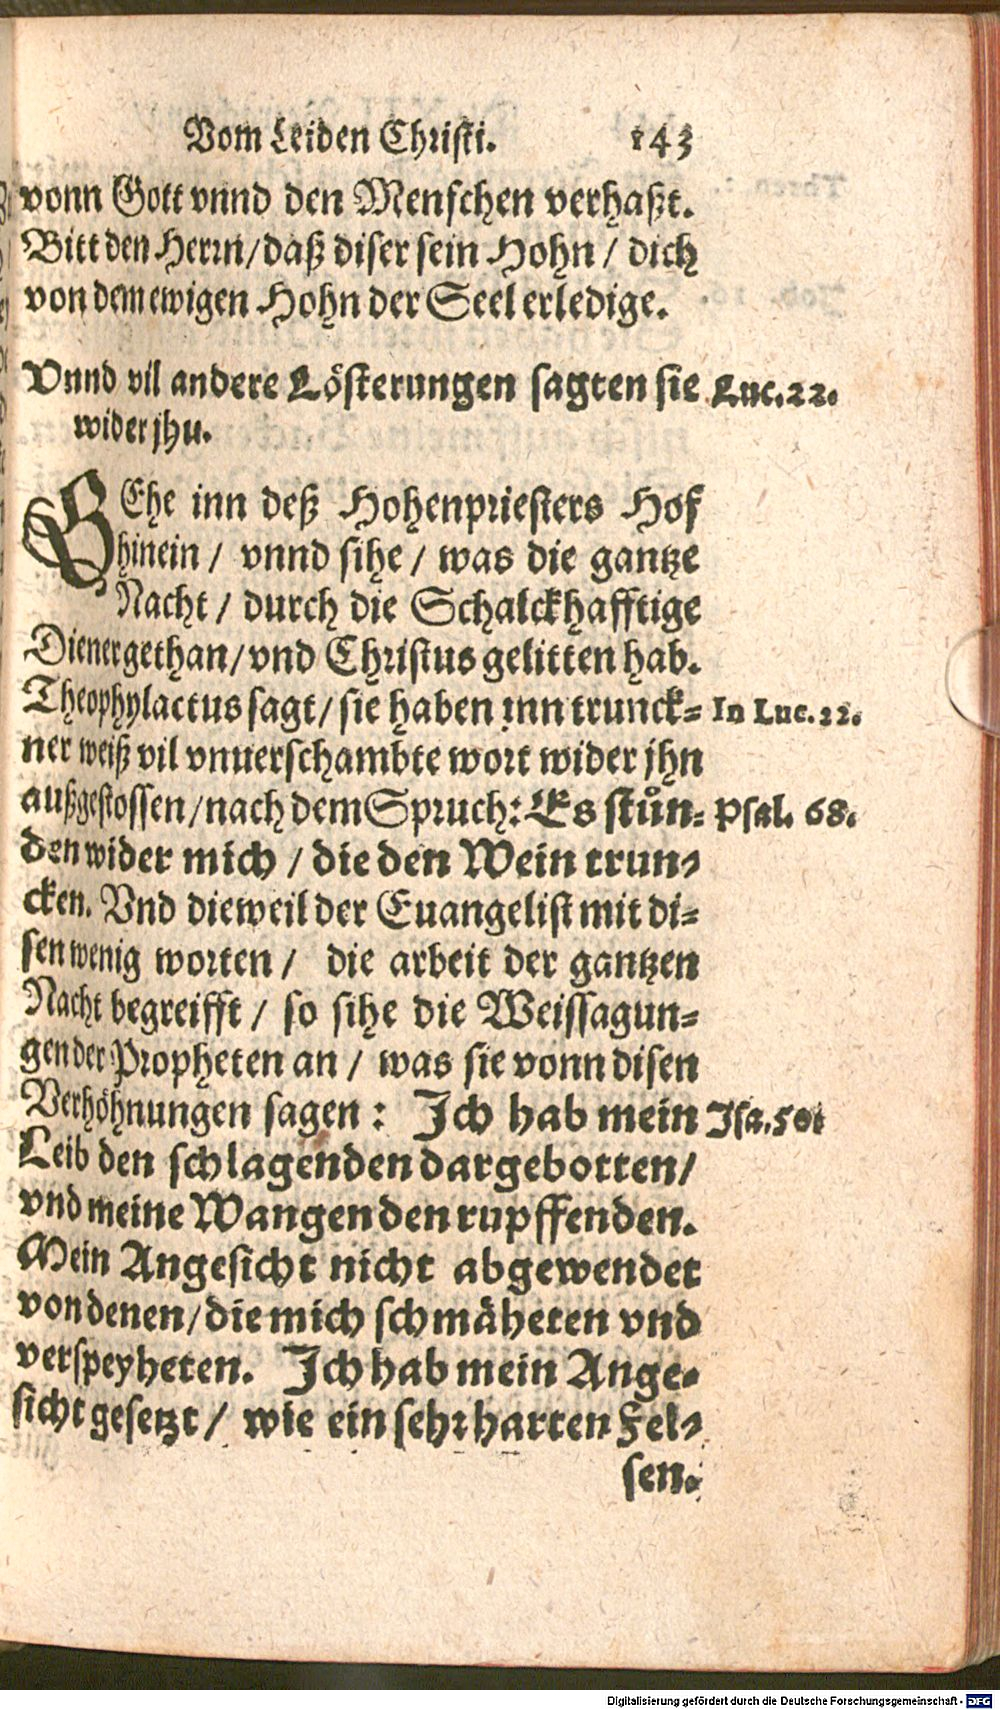 Vom Leiden Christi. 143
vonn Gott vnnd den Menschen verhaßt.
Bitt den Herrn/ daß diser sein Hohn / dich
von dem ewigen Hohn der Seel erledige.
Vnnd vil andere Lösterungen sagten sie Luc. 22.
wider jhn.
GEhe inn deß Hohenpriesters Hof
hinein / vnnd sihe / was die gantze
Nacht / durch die Schalckhafftige
Diener gethan/ vnd Christus gelitten hab.
Theophylactus sagt/ sie haben inn trunck= In Luc. 22.
ner weiß vil vnuerschambte wort wider jhn
außgestossen/ nach dem Spruch: Es stůn= Psal. 68.
den wider mich / die den Wein trun=
cken. Vnd dieweil der Euangelist mit di=
sen wenig worten / die arbeit der gantzen
Nacht begreifft / so sihe die Weissagun=
gen der Propheten an / was sie vonn disen
Verhöhnungen sagen : Ich hab mein Isa. 50.
Leib den schlagenden dargebotten/
vnd meine Wangen den rupffenden.
Mein Angesicht nicht abgewendet
von denen/ die mich schmäheten vnd
verspeyheten. Ich hab mein Ange=
sicht gesetzt / wie ein sehr harten Fel=
sen.
Digitalisierung gefördert durch die Deutsche Forschungsgemeinschaft - DFG